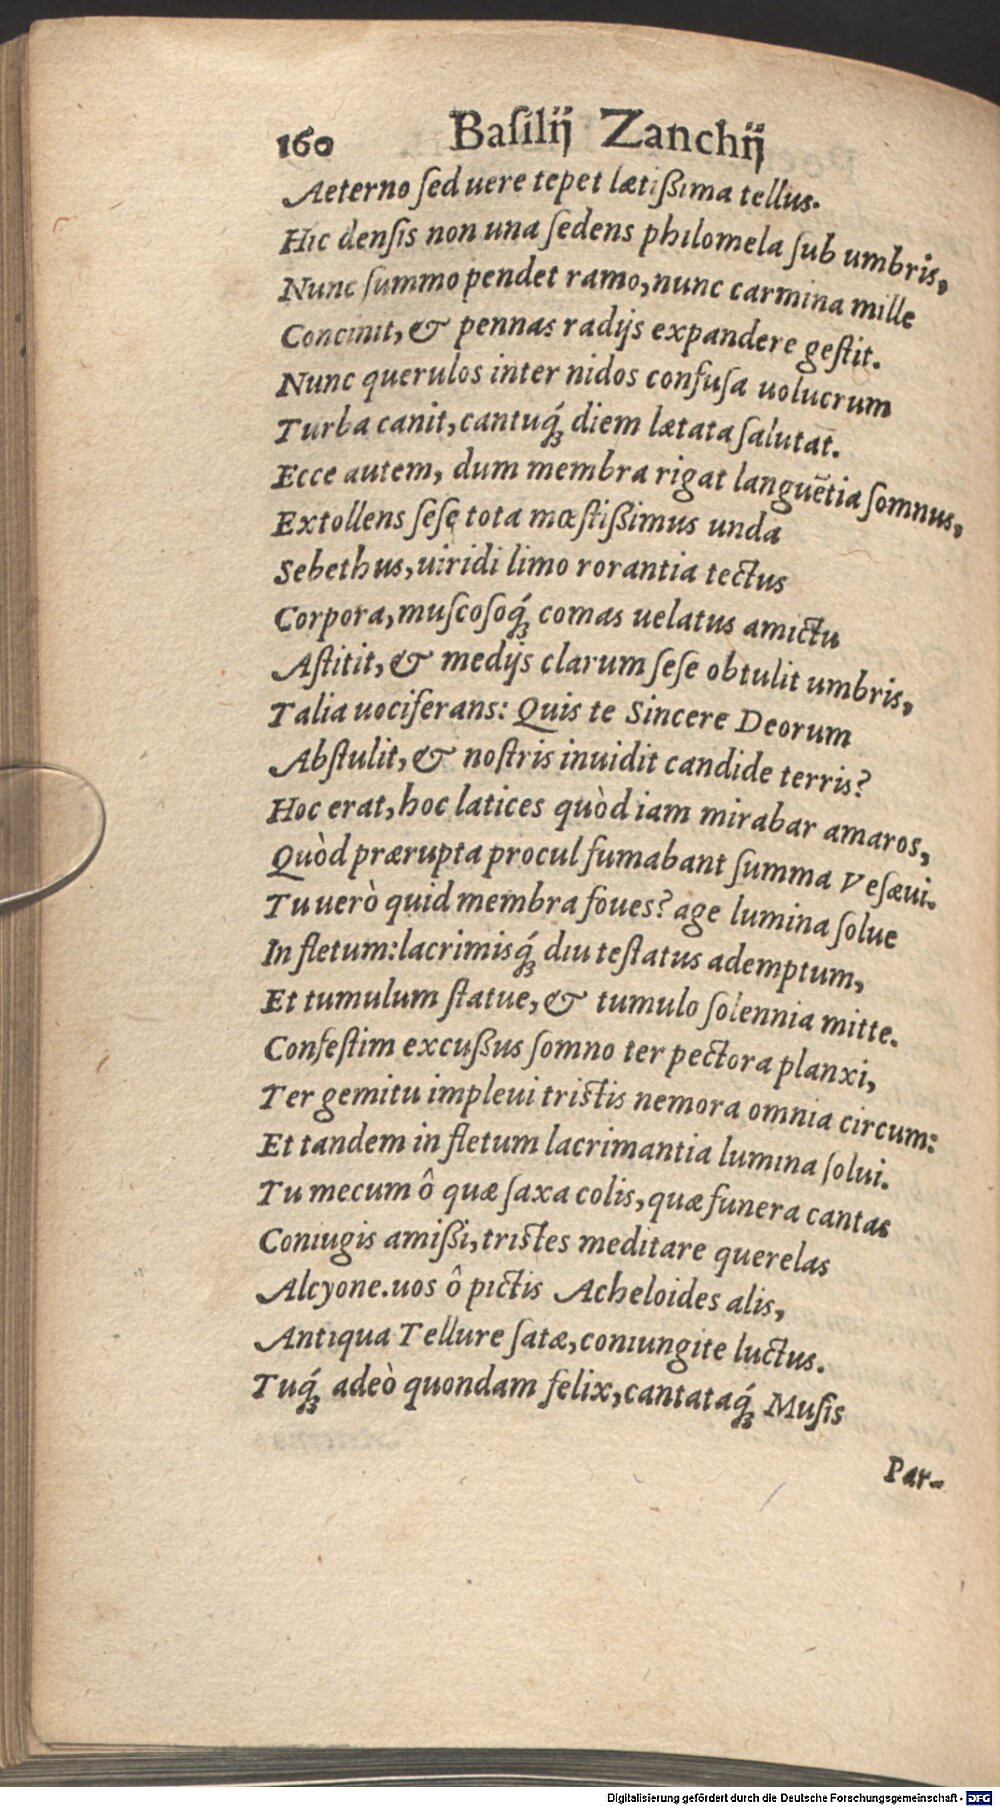 160 Baſilij Zanchij
Aeterno ſed uere tepet lætißima tellus.
Hic denſis non una ſedens philomela ſub umbris,
Nunc ſummo pendet ramo, nunc carmina mille
Concinit, & pennas radijs expandere geſtit.
Nunc querulos inter nidos confuſa uolucrum
Turba canit, cantuq́; diem lætata ſalutat.
Ecce autem, dum membra rigat languẽtia ſomnus,
Extollens ſeſe tota mœſtißimus unda
Sebethus, uiridi limo rorantia tectus
Corpora, muſcoſoq́; comas uelatus amictu
Aſtitit, & medijs clarum ſeſe obtulit umbris,
Talia uociferans: Quis te Sincere Deorum
Abſtulit, & noſtris inuidit candide terris?
Hoc erat, hoc latices quòd iam mirabar amaros,
Quòd prærupta procul fumabant ſumma Veſæui.
Tu uerò quid membra foues? age lumina ſolue
In fletum: lacrimisq́; diu teſtatus ademptum,
Et tumulum ſtatue, & tumulo ſolennia mitte.
Confeſtim excußus ſomno ter pectora planxi,
Ter gemitu impleui triſtis nemora omnia circum:
Et tandem in fletum lacrimantia lumina ſolui.
Tu mecum ô quæ ſaxa colis, quæ funera cantas
Coniugis amißi, triſtes meditare querelas
Alcyone. uos ô pictis Acheloides alis,
Antiqua Tellure ſatæ, coniungite luctus.
Tuq́; adeò quondam felix, cantataq́; Muſis
Par-
Digitalisierung gefördert durch die Deutsche Forschungsgemeinschaft - DFG